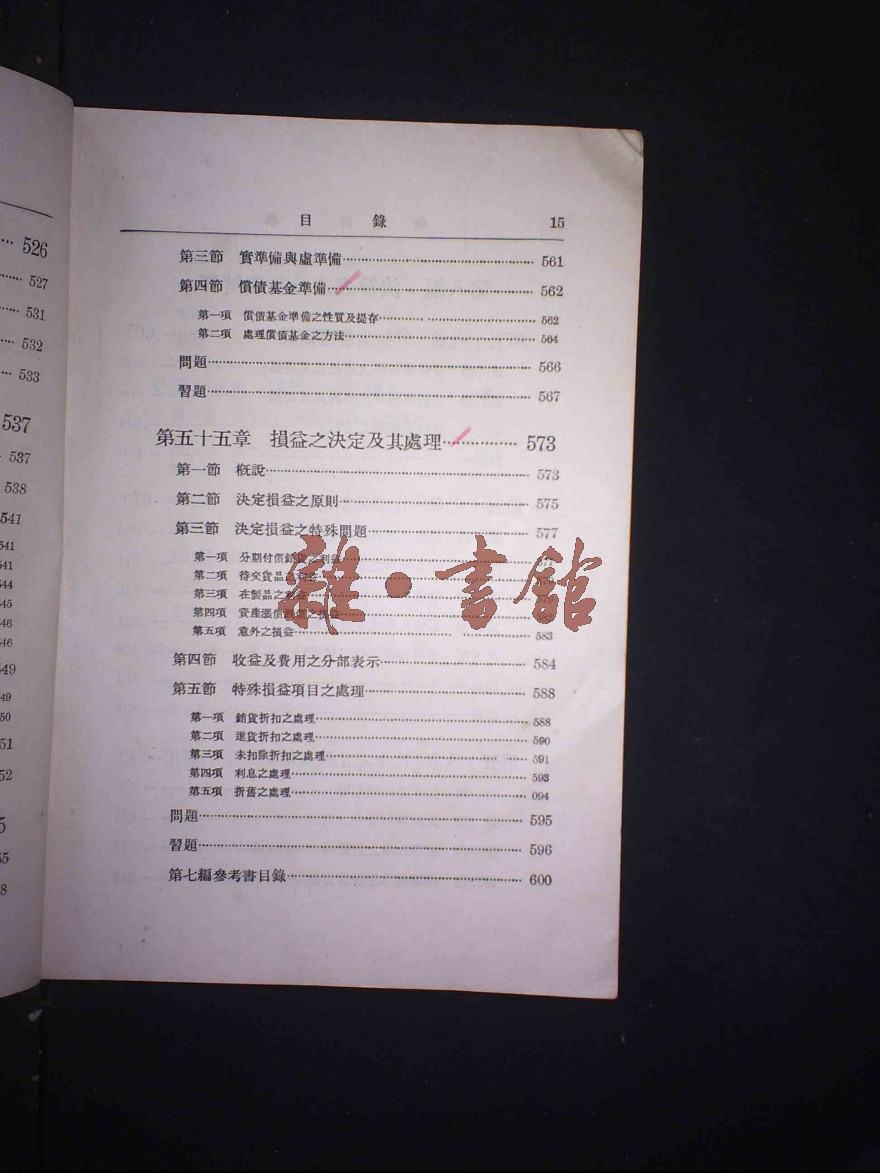 526
527
531
532
533
537
537
538
541
541
541
544
545
546
546
549
549
550
551
552
目錄 15
第三節 實準備與虛準備 561
第四節 償債基金準備 562
第一項 償債基金準備之性質及提存 562
第二項 處理償債基金之方法 564
問題 566
習題 567
第五十五章 損益之決定及其處理 573
第一節 概說 573
第二節 決定損益之原則 575
第三節 決定損益之特殊問題 577
第一項 分期付價銷貨之利益
第二項 待交貨品之利益
第三項 在製品之利益
第四項 資產漲價跌價之損益
第五項 意外之損益 583
第四節 收益及費用之分部表示 584
第五節 特殊損益項目之處理 588
第一項 銷貨折扣之處理 588
第二項 進貨折扣之處理 590
第三項 未扣除折扣之處理 591
第四項 利息之處理 593
第五項 折舊之處理 094
問題 595
習題 596
第七編參考書目錄 600
雜·書館